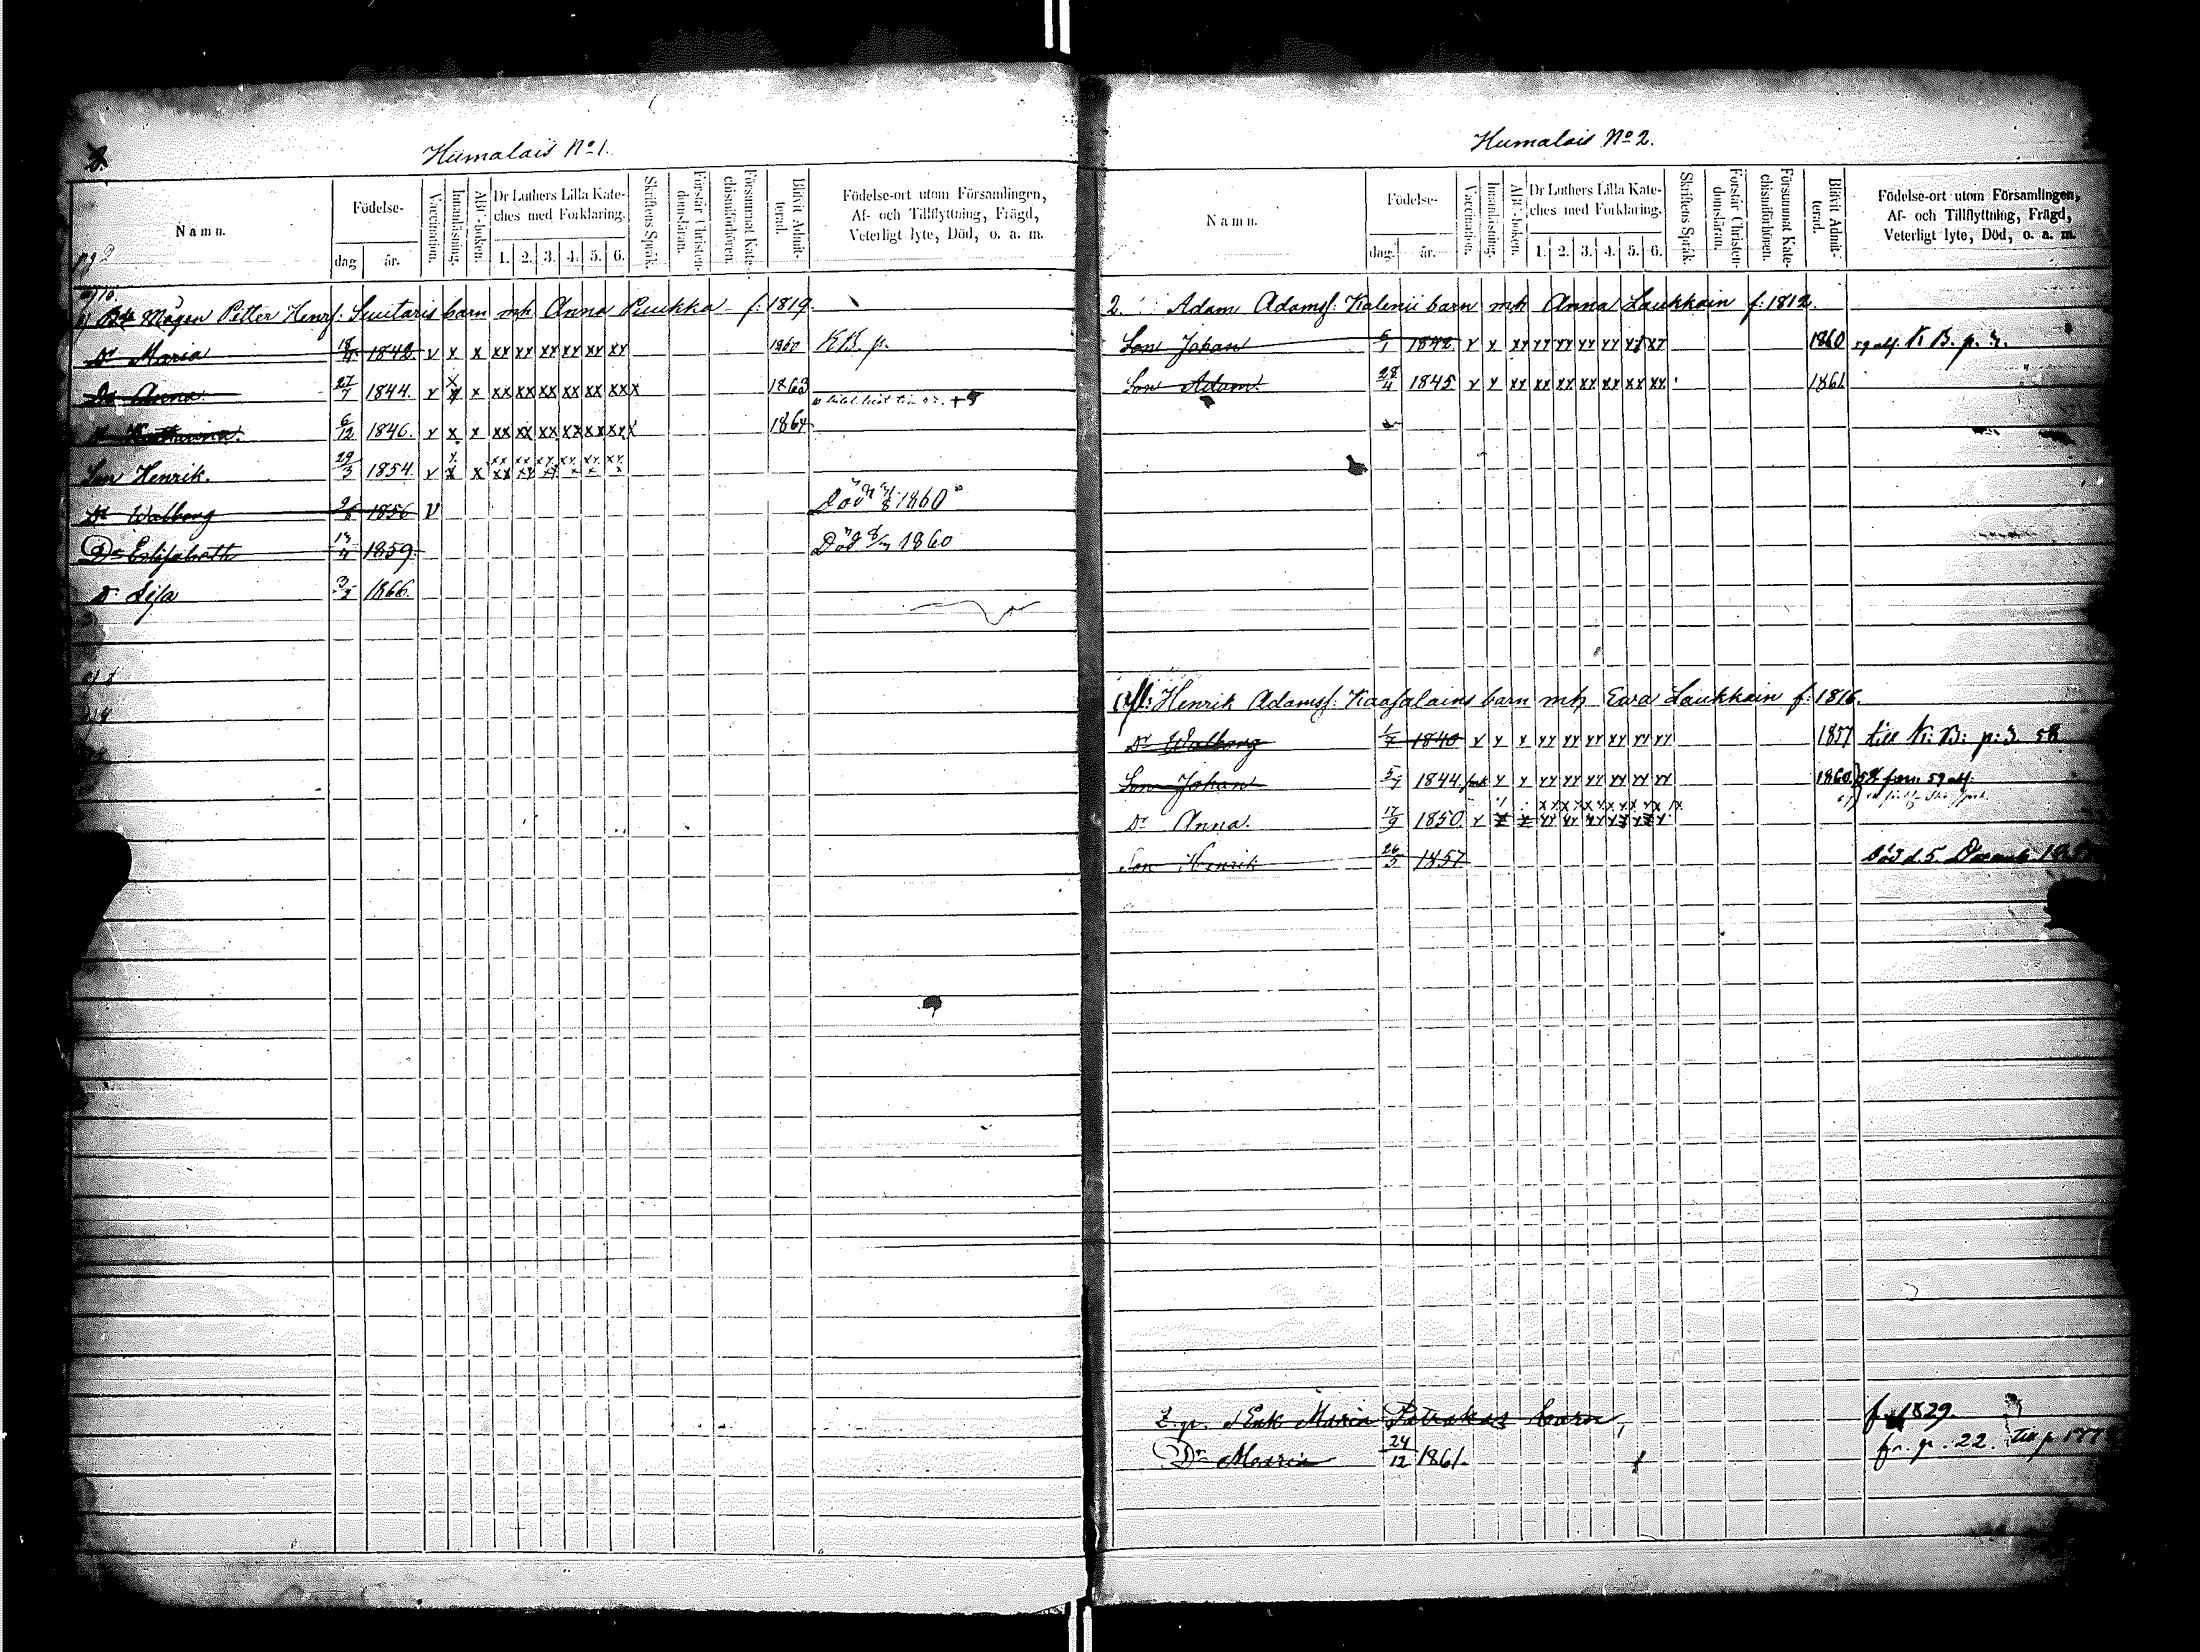 Humalais No 1.
Namn.
Födelse-
dag
år.
Vaccination.
Innanläsning.
ABC-boken.
Dr Luthers Lilla Kate-
ches med Förklaring.
1. 2. 3. 4. 5. 6.
Skriftens Språk.
Förstår Christen-
domsläran.
Försummat Kate-
chismiförhören.
Blifvit Admit-
terad.
Födelse-ort utom Församlingen,
Af- och Tillflyttning, Frägd,
Veterligt lyte, Död, o. a. m.
Mågen Petter Henrs: barn mh Anna Puukka f: 1819.
Dr Maria 18/4 1842. v x x xx xx xx xx xx xx 1860 KB. p.
Dr Anna 27/7 1844. v x x xx xx xx xx xx xxx 1863
6/12 1846. v x x xx xx xx xx xx xxx 1864
Son Henrik. 29/3 1854. v x x xx xx
Dr Walborg 1856 V Död 1860
Dr Elisabeth 13/4 1859. Död 1860
Dr Lisa 1866.
Humalais No 2.
Namn.
Födelse-
dag.
år.
Vaccination.
Innanläsning.
ABC-boken.
Dr Luthers Lilla Kate-
ches med Förklaring.
1. 2. 3. 4. 5. 6.
Skriftens Språk.
Förstår Christen-
domsläran.
Försummat Kate-
chismiförhören.
Blifvit Admit-
terad.
Födelse-ort utom Församlingen,
Af- och Tillflyttning, Frägd,
Veterligt lyte, Död, o. a. m.
2. Adam Adamsf: Kalenii barn mh Anna Laukkain f: 1812.
Son Johan 6/1 1842 v x xx xx xx xx xx xx xx 1860 K B. p. 3.
Son Adam 28/4 1845 v x xx xx xx xx xx xx xx 1861
Henrik Adamsf: Kaasalains barn mh Ewa Laukkain f: 1816.
Dr Walborg 1840 v x x xx xx xx xx xx xx 1857 till K: B: p: 3. 58
Son Johan 1844. x x xx xx xx xx xx xx 1860
Dr Anna. 17/9 1850. v
Son Henrik 26/5 1857 Död d. 5. Decemb.
Enk Maria Petrakas barn, f. 1829.
Dr Maria 24/12 1861. fr. p. 22.